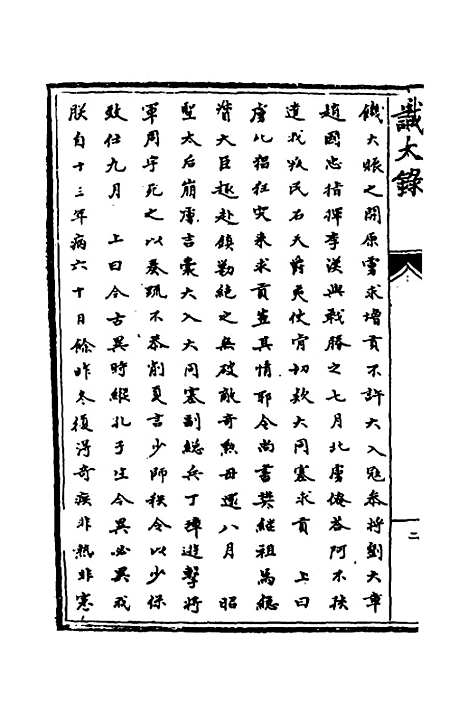 識大錄
饑大賑之開原虜求增貢不許大入寇參將劉大章
趙國忠指揮李漢與戰勝之七月北虜俺荅阿不孩
遣我叛民石天爵夷使肯切欵大同塞求貢 上曰
虜比猖狂突來求貢豈其情耶令尚書樊繼祖為總
督大臣趣赴鎮勦絶之無破敵奇勲毋還八月 昭
聖太后崩虜吉囊大入大同塞副總兵丁璋遊擊將
軍周宇死之以奏疏不恭削夏言少師秩令以少保
致仕九月 上曰今古異時縱孔子生今異必異我
朕自十三年病六十日餘昨冬復淂奇疾非熱非寒
二